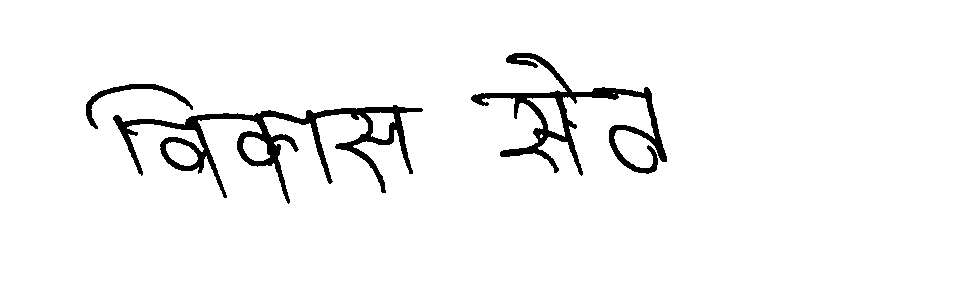 विकास सेव